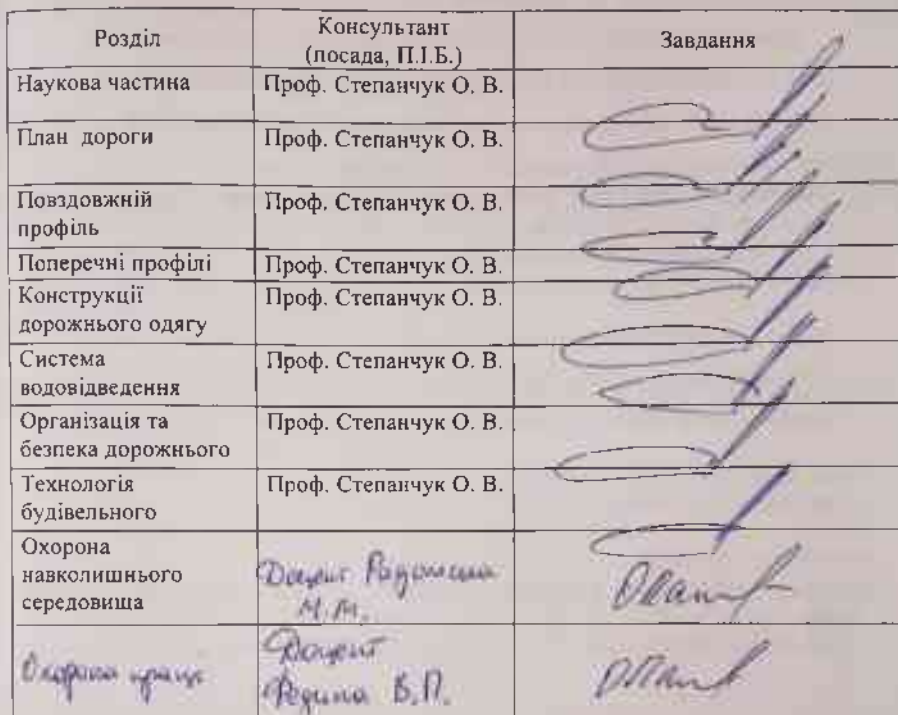 Розділ
Консультант
(посада, П.І.Б.)
Завдання
Наукова частина
Проф. Степанчук О. В.
План дороги
Проф. Степанчук О. В.
Повздовжній
профіль
Проф. Степанчук О. В.
Поперечні профілі
Проф. Степанчук О. В.
Конструкції
дорожнього одягу
Проф. Степанчук О. В.
Система
водовідведення
Проф. Степанчук О. В.
Організація та
безпека дорожнього
Проф. Степанчук О. В.
Технологія
будівельного
Проф. Степанчук О. В.
Охорона
навколишнього
середовища
Доцент
М.М.
Охорона праці
Доцент
В.П.